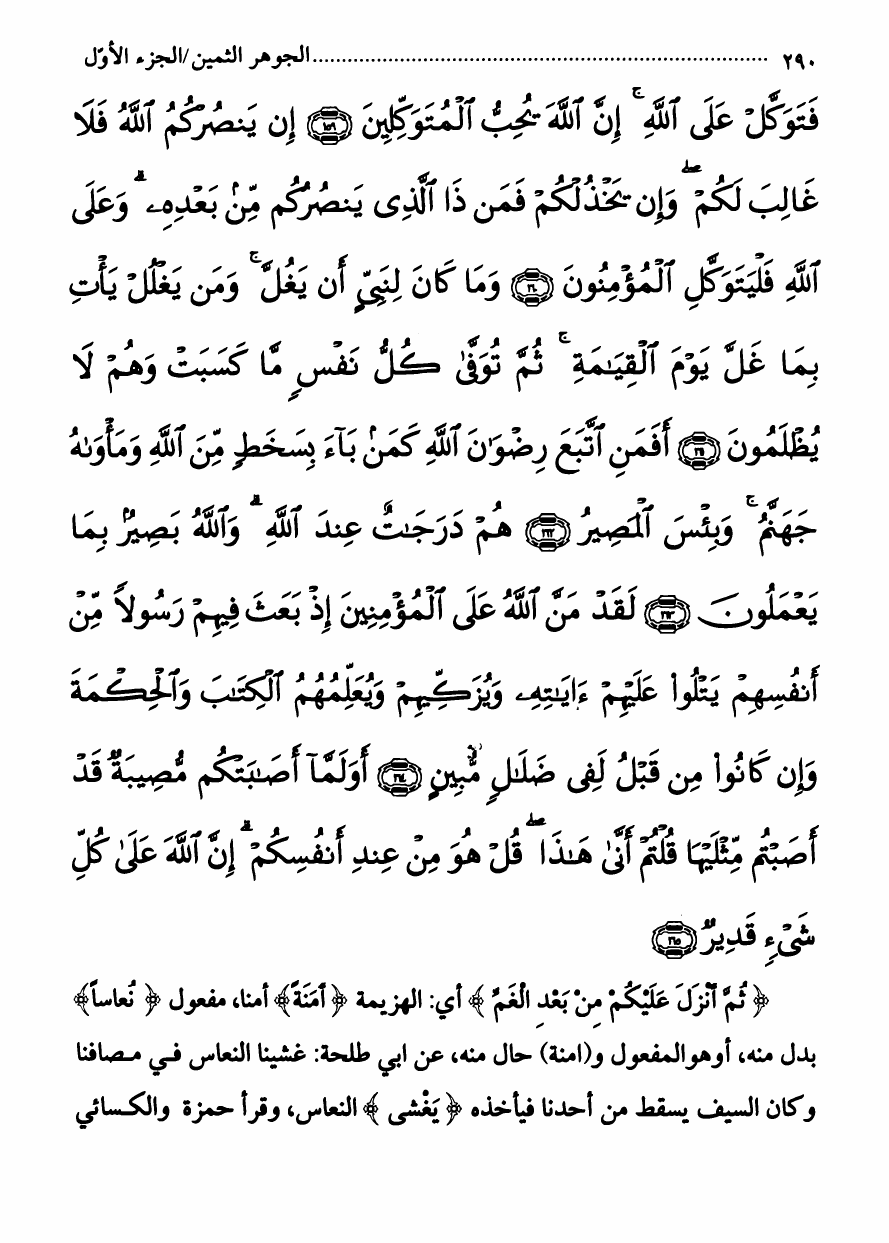 ٢٩٠ ........................................ الجوهر الثمين/الجزء الأوّل
فَتَوَكَّلْ عَلَى ٱللَّهِ ۚ إِنَّ ٱللَّهَ يُحِبُّ ٱلْمُتَوَكِّلِينَ ﴿١٥٩﴾ إِن يَنصُرْكُمُ ٱللَّهُ فَلَا
غَالِبَ لَكُمْ ۖ وَإِن يَخْذُلْكُمْ فَمَن ذَا ٱلَّذِى يَنصُرُكُم مِّنۢ بَعْدِهِۦ ۗ وَعَلَى
ٱللَّهِ فَلْيَتَوَكَّلِ ٱلْمُؤْمِنُونَ ﴿١٦٠﴾ وَمَا كَانَ لِنَبِىٍّ أَن يَغُلَّ ۚ وَمَن يَغْلُلْ يَأْتِ
بِمَا غَلَّ يَوْمَ ٱلْقِيَـٰمَةِ ۚ ثُمَّ تُوَفَّىٰ كُلُّ نَفْسٍ مَّا كَسَبَتْ وَهُمْ لَا
يُظْلَمُونَ ﴿١٦١﴾ أَفَمَنِ ٱتَّبَعَ رِضْوَٰنَ ٱللَّهِ كَمَنۢ بَآءَ بِسَخَطٍ مِّنَ ٱللَّهِ وَمَأْوَىٰهُ
جَهَنَّمُ ۚ وَبِئْسَ ٱلْمَصِيرُ ﴿١٦٢﴾ هُمْ دَرَجَـٰتٌ عِندَ ٱللَّهِ ۗ وَٱللَّهُ بَصِيرٌۢ بِمَا
يَعْمَلُونَ ﴿١٦٣﴾ لَقَدْ مَنَّ ٱللَّهُ عَلَى ٱلْمُؤْمِنِينَ إِذْ بَعَثَ فِيهِمْ رَسُولًا مِّنْ
أَنفُسِهِمْ يَتْلُوا۟ عَلَيْهِمْ ءَايَـٰتِهِۦ وَيُزَكِّيهِمْ وَيُعَلِّمُهُمُ ٱلْكِتَـٰبَ وَٱلْحِكْمَةَ
وَإِن كَانُوا۟ مِن قَبْلُ لَفِى ضَلَـٰلٍ مُّبِينٍ ﴿١٦٤﴾ أَوَلَمَّآ أَصَـٰبَتْكُم مُّصِيبَةٌ قَدْ
أَصَبْتُم مِّثْلَيْهَا قُلْتُمْ أَنَّىٰ هَـٰذَا ۖ قُلْ هُوَ مِنْ عِندِ أَنفُسِكُمْ ۗ إِنَّ ٱللَّهَ عَلَىٰ كُلِّ
شَىْءٍ قَدِيرٌ ﴿١٦٥﴾
﴿ ثُمَّ أَنْزَلَ عَلَيْكُمْ مِنْ بَعْدِ الْغَمِّ ﴾ أي: الهزيمة ﴿ أَمَنَةً﴾ أمنا، مفعول ﴿ نُعاساً﴾
بدل منه، أوهوالمفعول و(امنة) حال منه، عن ابي طلحة: غشينا النعاس في مصافنا
وكان السيف يسقط من أحدنا فيأخذه ﴿ يَغْشى ﴾ النعاس، وقرأ حمزة والكسائي